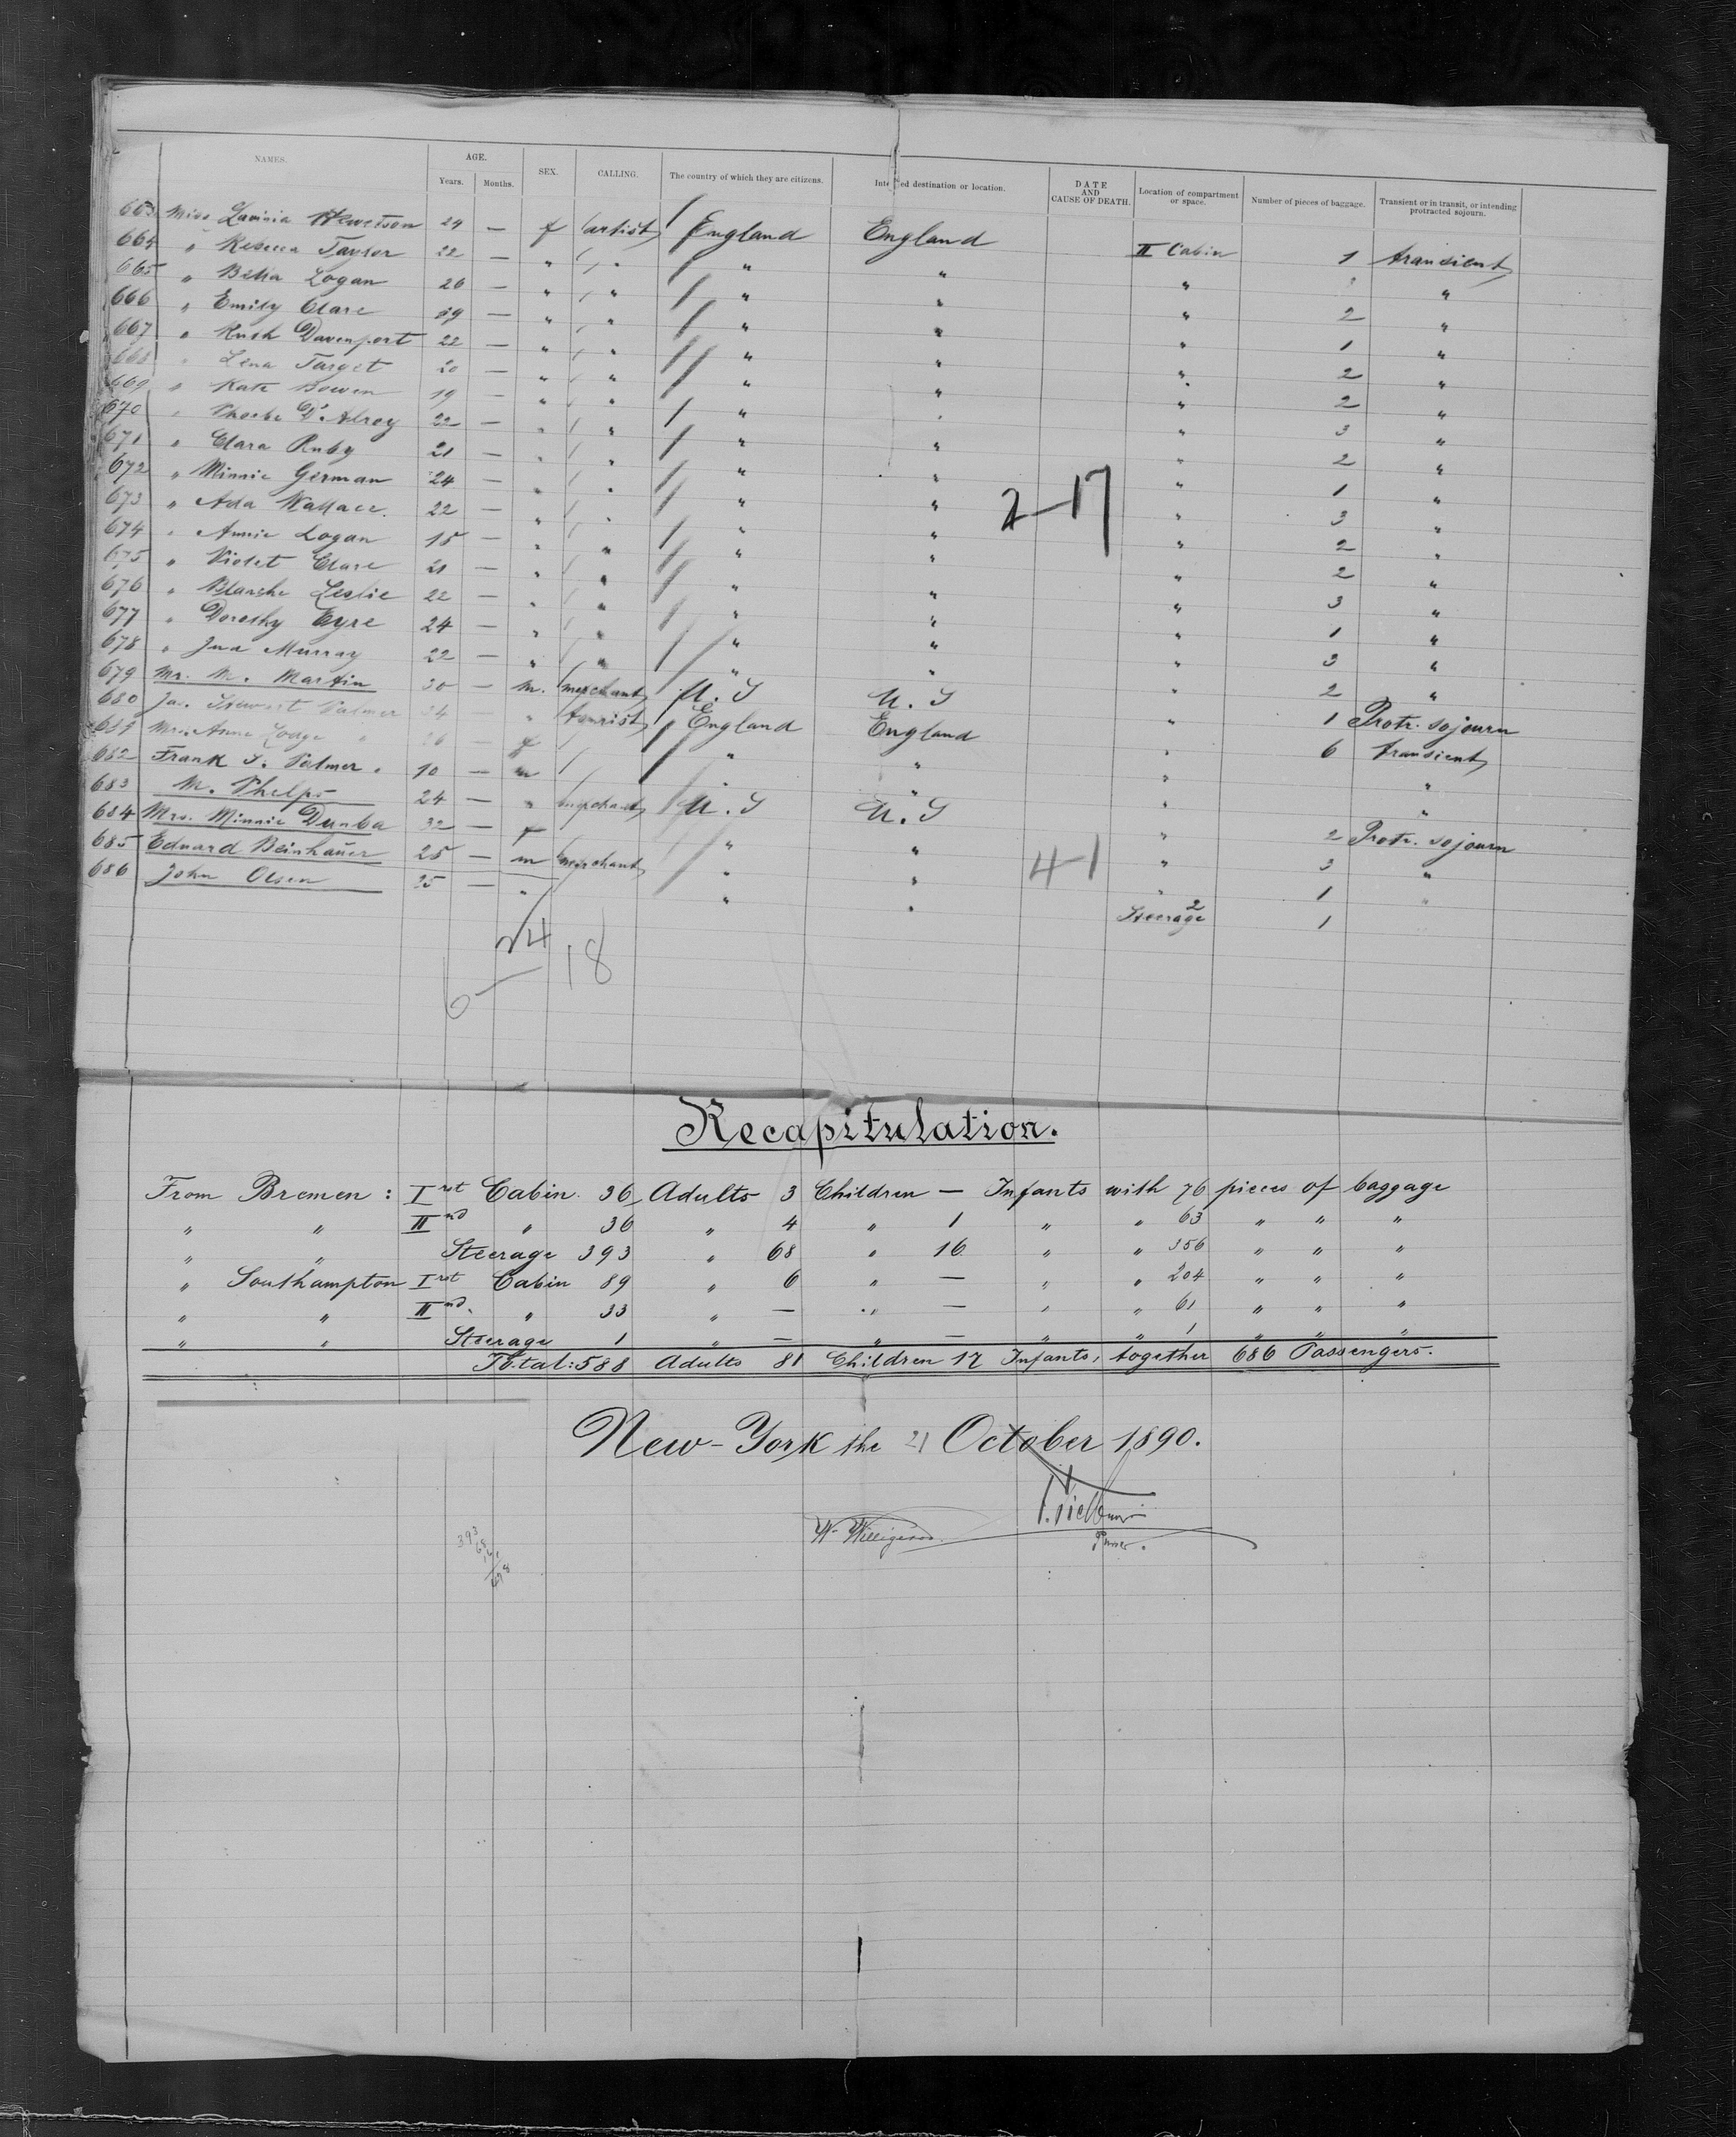 NAMES. AGE. Years. Months. SEX. CALLING. The country of which they are citizens. Intended destination or location. DATE AND CAUSE OF DEATH. Location of compartment or space. Number of pieces of baggage. Transient or in transit, or intending protracted sojourn.
663 Miss Lavinia Hewetson 24 — f artist England England II Cabin 1 transient
664 " Rebecca Taylor 22 — " " " " " "
665 " Bella Logan 26 — " " " " " 2 "
666 " Emily Clare 19 — " " " " " 1 "
667 " Rush Davenport 22 — " " " " " 2 "
668 " Lena Target 20 — " " " " " 2 "
669 " Kate Bowen 19 — " " " " " 3 "
670 " Phoebe D'Alroy 22 — " " " " " 2 "
671 " Clara Ruby 21 — " " " " " 1 "
672 " Minnie German 24 — " " " " " 3 "
673 " Ada Wallace. 22 — " " " " " 2 "
674 " Annie Logan 15 — " " " " " 2 "
675 " Violet Clare 21 — " " " " " 3 "
676 " Blanche Leslie 22 — " " " " " 1 "
677 " Dorothy Eyre 24 — " " " " " 3 "
678 " Ina Murray 22 — " " " " " 2 "
679 Mr. M. Martin 30 — m. merchant U.S U.S " 1 Protr. sojourn
680 Jac. Stewart Palmer 34 — " tourist England England " 6 transient
681 Mrs. Anna Lodge " 26 — f " " " "
682 Frank S. Palmer " 10 — m " " " "
683 M. Phelps 24 — " merchant U.S U.S " 2 Protr. sojourn
684 Mrs. Minnie Dunba 32 — f " " " 3 "
685 Eduard Beinhauer 25 — m merchant " " " 1 "
686 John Olsen 35 — " " " Steerage 1
2-17
4-1
2
24
6 — 18
Recapitulation.
From Bremen: Irst Cabin. 36 Adults 3 Children — Infants with 76 pieces of baggage
" " IInd " 36 " 4 " 1 " " 63 " " "
" " Steerage 393 " 68 " 16 " " 356 " " "
" Southampton Irst Cabin 89 " 6 " — " " 204 " " "
" " IInd. " 33 " — " — " " 61 " " "
" " Steerage 1 " — " — " " 1 " " "
Total: 588 Adults 81 Children 17 Infants, together 686 Passengers.
New-York the 21 October 1890.
W. Willigerod
Purser.
393
68
16
1
478